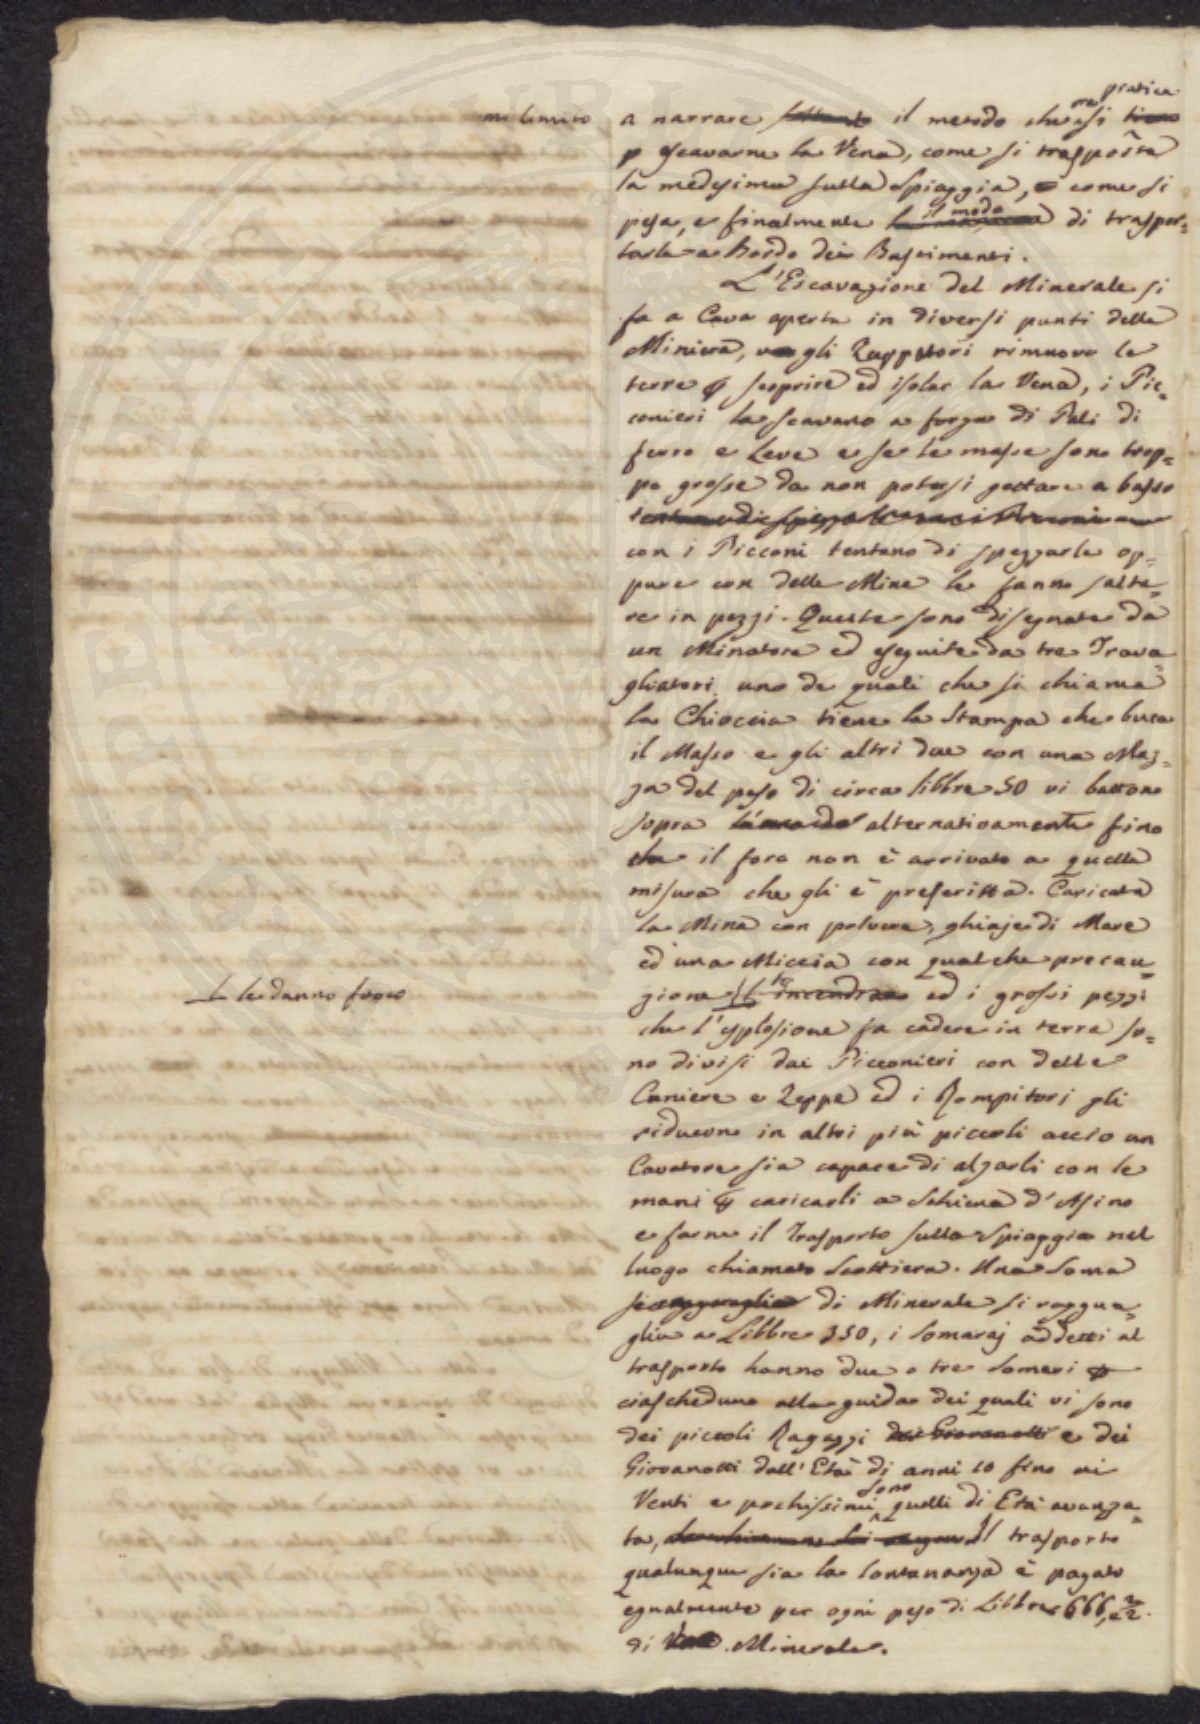 mi limito a narrare soltanto il metodo che ora si pratica tiene
p escavarne la Vena, come si trasporta
la medesima sulla Spiaggia, e come si
pesa, e finalmente il modo di traspor=
tarla a Bordo dei Bastimenti.
L'Escavazione del Minerale si
fa a Cava aperta in diversi punti della
Miniera, gli Zappatori rimuove le
terre p scoprire ed isolar la Vena, i Pic=
conieri la scavano a forza di Pali di
ferro e Leve e se le masse sono trop=
po grosse da non potersi gettare a basso
con i Picconi tentano di spezzarle op=
pure con delle Mine le fanno salta=
re in pezzi. Queste sono disegnate da
un Minatore ed eseguite da tre Trava=
gliatori uno de quali che si chiama
la Chioccia tiene la Stampa che buca
il Masso e gli altri due con una Maz=
za del peso di circa libbre 50 vi battono
sopra alternativamente fino
che il foro non è arrivato a quella
misura che gli è prescritta. Caricata
la Mina con polvere, ghiaje di Mare
ed una Miccia con qualche precau=
zione le danno fuoco incendiano ed i grossi pezzi
che l'esplosione fa cadere in terra so=
no divisi dai Picconieri con delle
Cuniere e Zeppe ed i Rompitori gli
riducono in altri più piccoli accio un
Cavatore sia capace di alzarli con le
mani p caricarli a Schiena d'Asino
e farne il Trasporto sulla Spiaggia nel
luogo chiamato Scottiera. Una Soma
si ragguaglia di Minerale si raggua=
glia a Libbre 350, i Somaraj addetti al
trasporto hanno due o tre Somari p
ciascheduno alla guida dei quali vi sono
dei piccoli Ragazzi dei Giovanotti e dei
Giovanotti dall'Età di anni 10 fino ai
Venti e pochissimi sono quelli di Età avanza=
ta, Il trasporto
qualunque sia la lontananza è pagato
egualmente per ogni peso di Libbre 666,
di Vena Minerale.